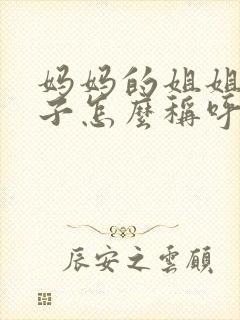 妈妈的姐姐
子怎麼稱呼
辰安之雲頎